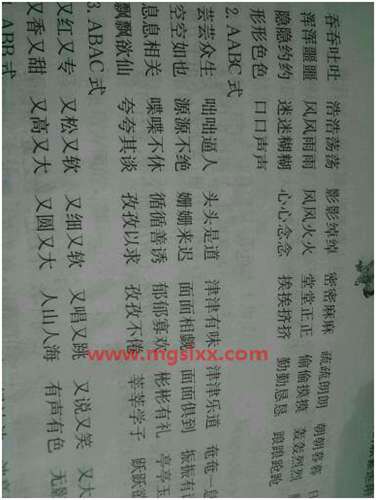 吞吞吐吐 浩浩荡荡 影影绰绰 密密麻麻 疏疏朗朗 朝朝暮暮
浑浑噩噩 风风雨雨 风风火火 堂堂正正 偷偷摸摸 轰轰烈烈
隐隐约约 迷迷糊糊 心心念念 挨挨挤挤 勤勤恳恳 踉踉跄跄
形形色色 口口声声
2. AABC 式
芸芸众生 咄咄逼人 头头是道 津津有味 津津乐道 奄奄一息
空空如也 源源不绝 姗姗来迟 面面相觑 面面俱到 振振有
息息相关 喋喋不休 循循善诱 郁郁寡欢 彬彬有礼 亭亭玉
飘飘欲仙 夸夸其谈 孜孜以求 孜孜不倦 莘莘学子 跃跃欲
3. ABAC 式
又红又专 又松又软 又细又软 又唱又跳 又说又笑 又大
又香又甜 又高又大 又圆又大 人山人海 有声有色 无影
ABB 式
www.mgslxx.com